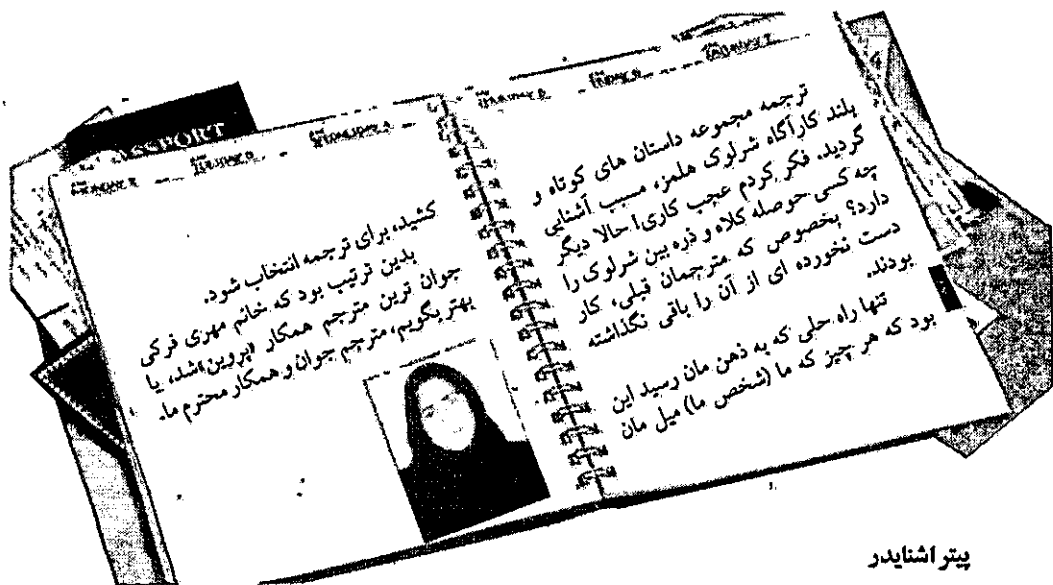 PASSPORT
ترجمه مجموعه داستان های کوتاه و
بلند کارآگاه شرلوک هلمز، مسبب آشنایی
گردید. فکر کردم عجب کاری! حالا دیگر
چه کسی حوصله کلاه و ذره بین شرلوک را
دارد؟ بخصوص که مترجمان قبلی، کار
دست نخورده ای از آن را باقی نگذاشته
بودند.
تنها راه حلی که به ذهن مان رسید این
بود که هر چیز که ما (شخص ما) میل مان
کشید، برای ترجمه انتخاب شود.
بدین ترتیب بود که خانم مهری فرکی
جوان ترین مترجم همکار «پروین» شد، یا
بهتر بگویم، مترجم جوان و همکار محترم ما.
پیتر اشنایدر